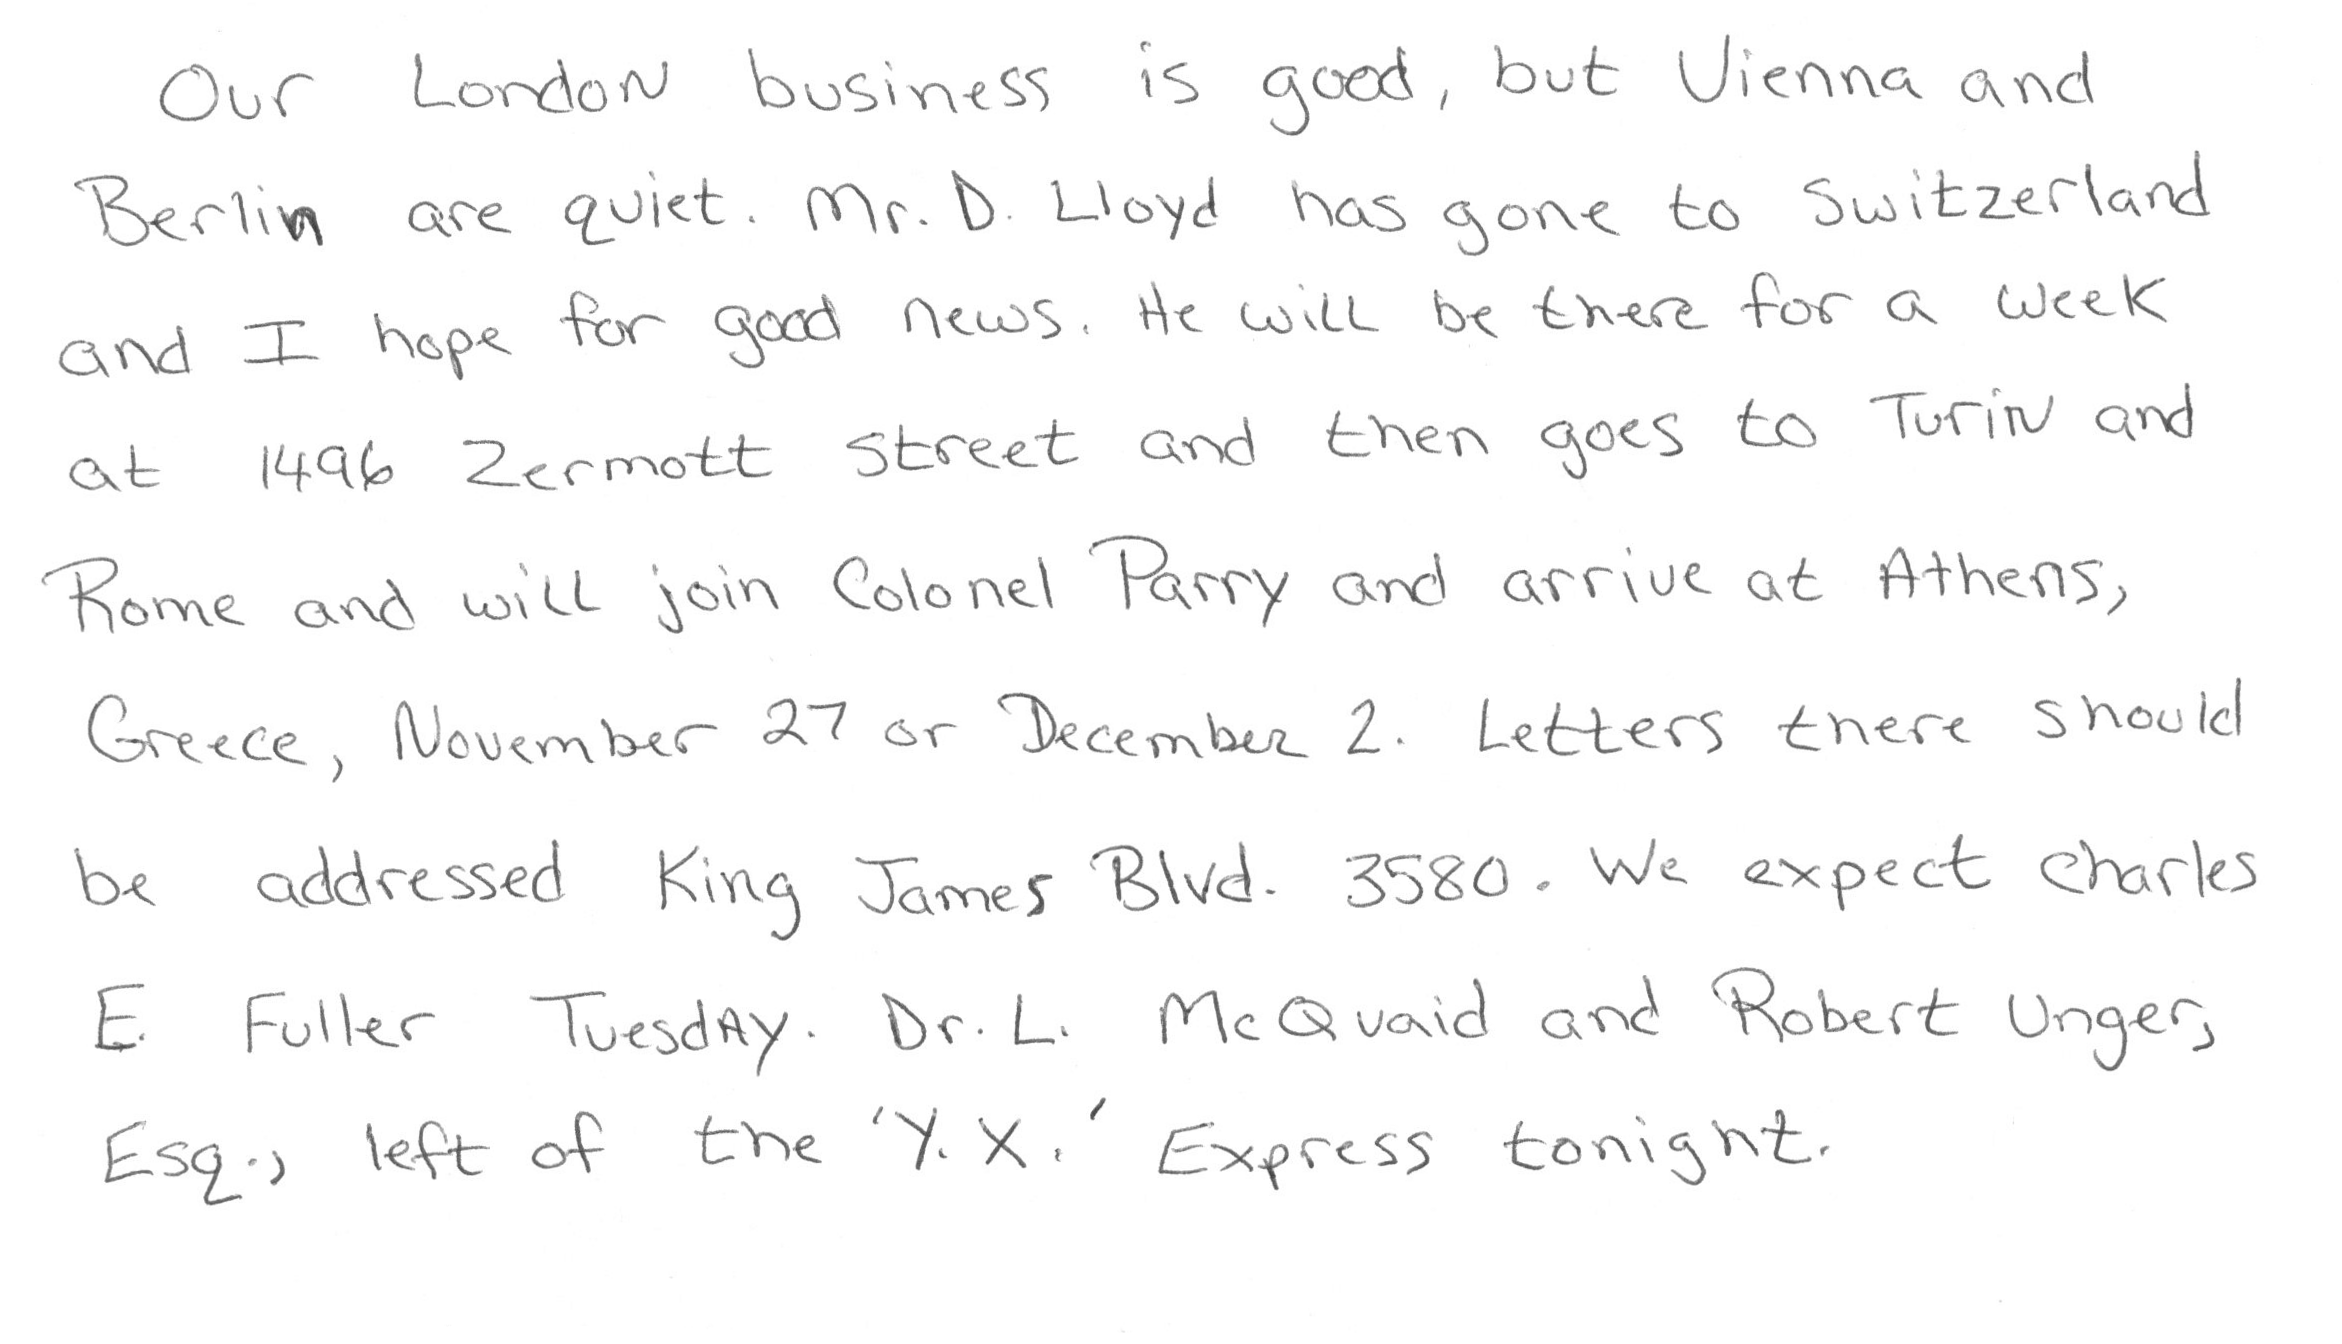 Our London business is good, but Vienna and
Berlin are quiet. Mr. D. Lloyd has gone to Switzerland
and I hope for good news. He will be there for a week
at 1496 Zermott Street and then goes to Turin and
Rome and will join Colonel Parry and arrive at Athens,
Greece, November 27 or December 2. Letters there should
be addressed King James Blvd. 3580. We expect Charles
E. Fuller Tuesday. Dr. L. McQuaid and Robert Unger,
Esq., left of the 'Y. X.' Express tonight.